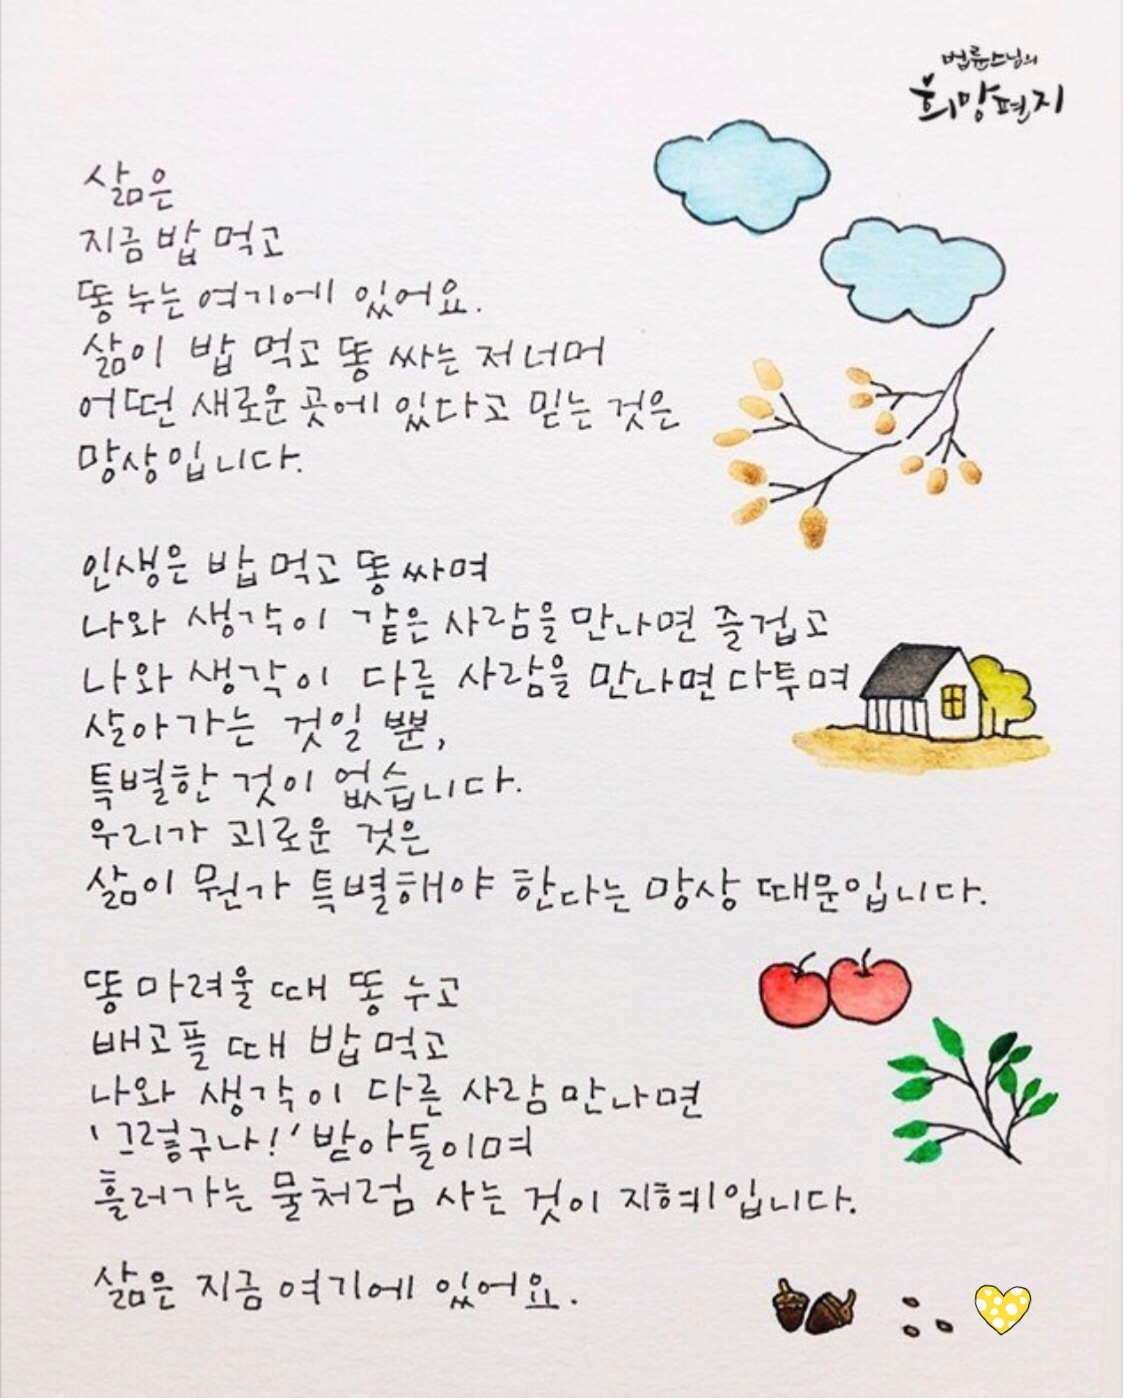 법륜스님의
희망편지
삶은
지금 밥 먹고
똥 누는 여기에 있어요.
삶이 밥 먹고 똥 싸는 저 너머
어떤 새로운 곳에 있다고 믿는 것은
망상입니다.
인생은 밥 먹고 똥 싸며
나와 생각이 같은 사람을 만나면 즐겁고
나와 생각이 다른 사람을 만나면 다투며
살아가는 것일 뿐,
특별한 것이 없습니다.
우리가 괴로운 것은
삶이 뭔가 특별해야 한다는 망상 때문입니다.
똥 마려울 때 똥 누고
배고플 때 밥 먹고
나와 생각이 다른 사람 만나면
'그렇구나!' 받아들이며
흘러가는 물처럼 사는 것이 지혜입니다.
삶은 지금 여기에 있어요.